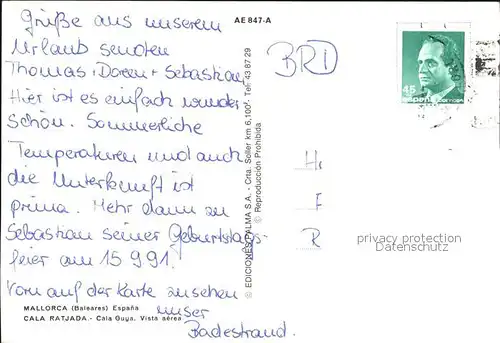 Grüße aus unserem
Urlaub senden
Thomas, Doreen + Sebastian.
Hier ist es einfach wunder
schön. Sommerliche
Temperaturen und auch
die Unterkunft ist
prima. Mehr dann zu
Sebastian seiner Geburtstags-
feier am 15.9.91.
Vorn auf der Karte zu sehen
unser
Badestrand.
MALLORCA (Baleares) España
CALA RATJADA.- Cala Guya. Vista aérea
AE 847-A
© EDICIONES PALMA S.A. - Crta. Soller km 6,100 - Tel. 43 87 29
© Reproducción Prohibida
BRD
45
España correos
H
F
R
privacy protection
samlerforum.com